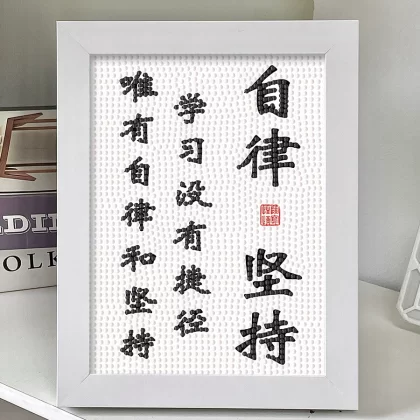 自律
坚持
学习没有捷径
唯有自律和坚持
DIN
OLK